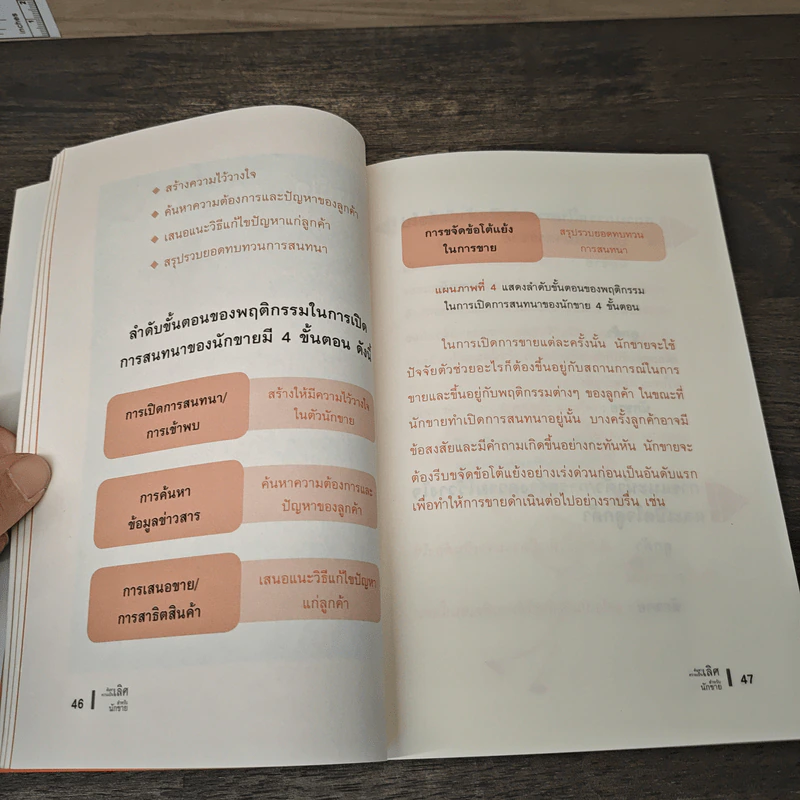 inches
◆ สร้างความไว้วางใจ
◆ ค้นหาความต้องการและปัญหาของลูกค้า
◆ เสนอแนะวิธีแก้ไขปัญหาแก่ลูกค้า
◆ สรุปรวบยอดทบทวนการสนทนา
ลำดับขั้นตอนของพฤติกรรมในการเปิด
การสนทนาของนักขายมี 4 ขั้นตอน ดังนี้
การเปิดการสนทนา/
การเข้าพบ
สร้างให้มีความไว้วางใจ
ในตัวนักขาย
การค้นหา
ข้อมูลข่าวสาร
ค้นหาความต้องการและ
ปัญหาของลูกค้า
การเสนอขาย/
การสาธิตสินค้า
เสนอแนะวิธีแก้ไขปัญหา
แก่ลูกค้า
46
เลิศ
สำหรับ
นักขาย
การขจัดข้อโต้แย้ง
ในการขาย
สรุปรวบยอดทบทวน
การสนทนา
แผนภาพที่ 4 แสดงลำดับขั้นตอนของพฤติกรรม
ในการเปิดการสนทนาของนักขาย 4 ขั้นตอน
ในการเปิดการขายแต่ละครั้งนั้น นักขายจะใช้
ปัจจัยตัวช่วยอะไรก็ต้องขึ้นอยู่กับสถานการณ์ในการ
ขายและขึ้นอยู่กับพฤติกรรมต่างๆ ของลูกค้า ในขณะที่
นักขายทำเปิดการสนทนาอยู่นั้น บางครั้งลูกค้าอาจมี
ข้อสงสัยและมีคำถามเกิดขึ้นอย่างกะทันหัน นักขายจะ
ต้องรีบขจัดข้อโต้แย้งอย่างเร่งด่วนก่อนเป็นอันดับแรก
เพื่อทำให้การขายดำเนินต่อไปอย่างราบรื่น เช่น
เลิศ
สำหรับ
นักขาย
47